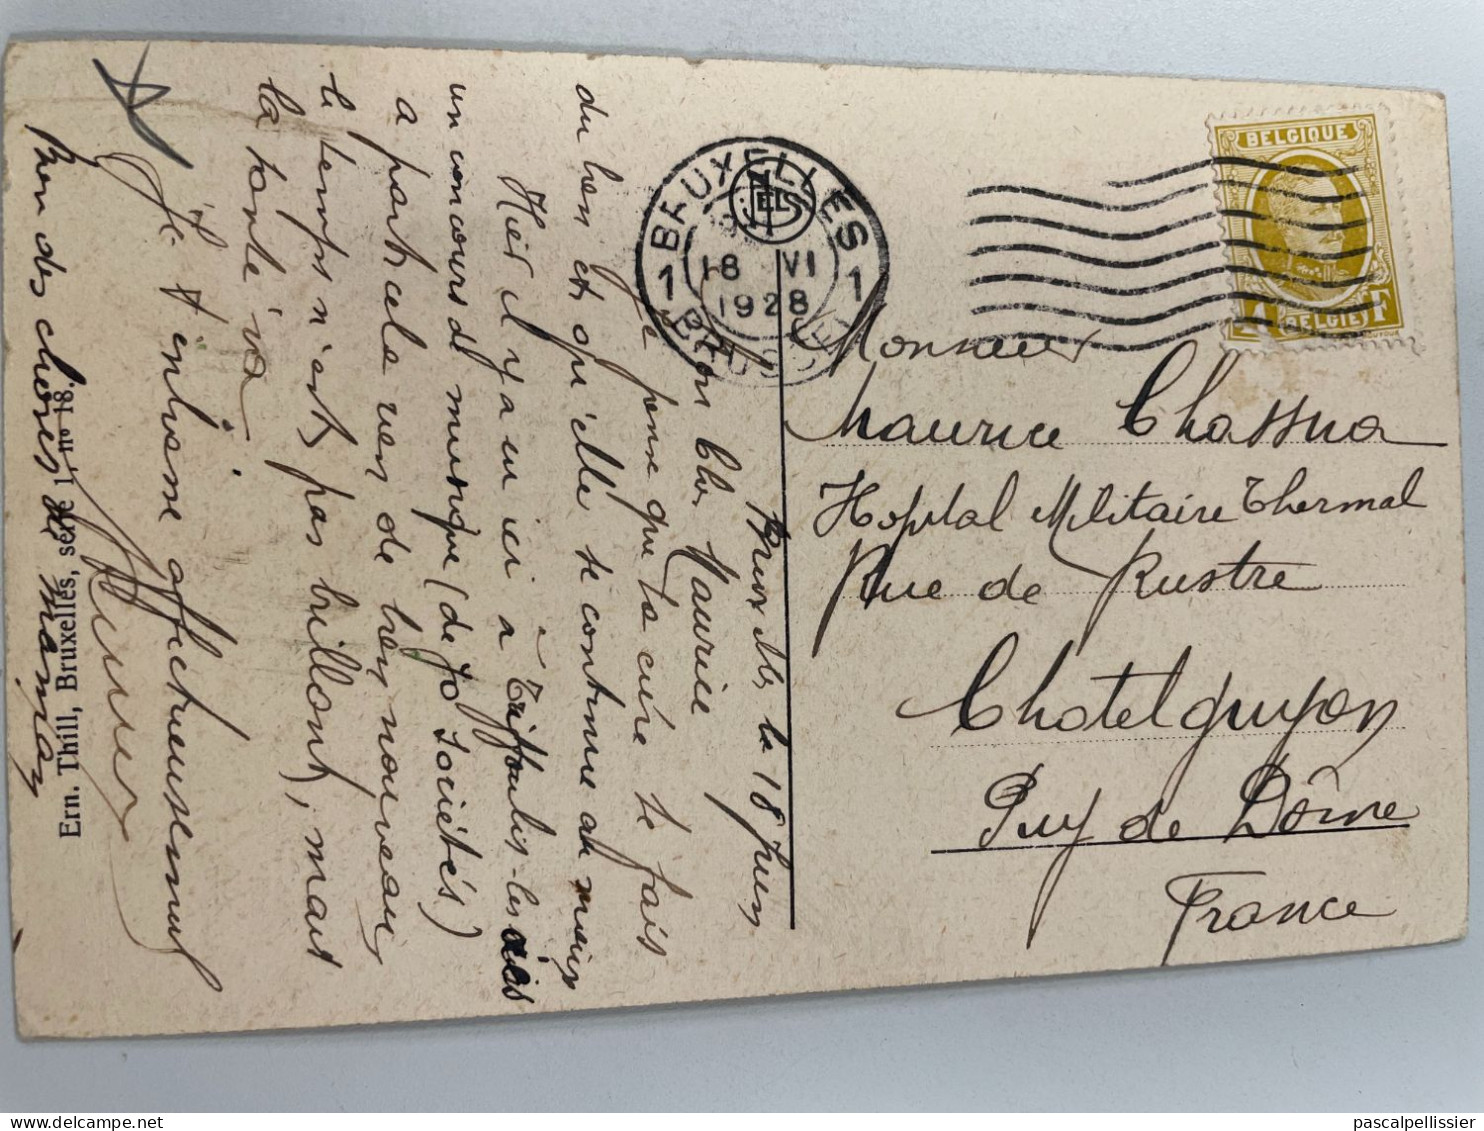 Bruxelles le 18 Juin
Mon Cher Maurice
Je pense que ta cure te fais
du bien et qu'elle te continue du mieux
Hier il y a eu ici à Triffoulis-les
un concours de musique (de 70 Sociétés)
a part cela rien de bien nouveau
le temps n'est pas brillant, mais
la santé va
Je t'embrasse affectueusement
Bien des choses de maman
Ern. Thill, Bruxelles, série 1, nº 18.
BRUXELLES
18 VI
1928
1 1
BRUSSEL
BELGIQUE
1 F
BELGIE
Monsieur
Maurice Chassna
Hopital Militaire Thermal
Rue de Rustre
Chatelguyon
Puy de Dôme
France
pascalpellissier